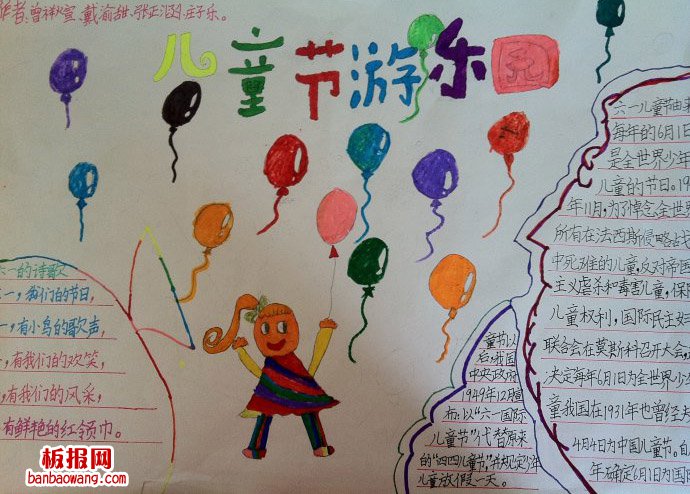 作者:曾祥煊、戴渝甜、
儿童节游乐园
六一的诗歌
一,我们的节日,
一,有小鸟的歌声,
,有我们的欢笑,
,有我们的风采,
有鲜艳的红领巾。
童节,以
后,我国
中央政府
1949年12月
布,以“六一国际
儿童节”代替原来
的“四四儿童节”,并规定少年
儿童放假一天。
六一儿童节由
每年的6月1日
是全世界少年
儿童的节日。19
年11月,为了悼念全世界
所有在法西斯侵略战
中死难的儿童,反对帝国
主义虐杀和毒害儿童,保障
儿童权利,国际民主妇
联合会在莫斯科召开大会,
决定每年6月1日为全世界少
童我国在1931年也曾经
4月4日为中国儿童节。自
年确定6月1日为国
板报网
banbaowang.com